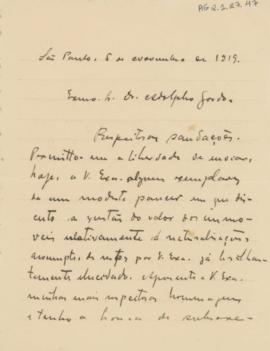 AG 2.2.27.47
São Paulo, 5 de novembro de 1919.
Exmo. Sr. Dr. Adolpho Gordo.
Respeitosas saudações.
Permitto-me a liberdade de
hoje, a V. Exa. alguns exemplares
de um modesto parecer em que dis-
cuto a questão do valor dos immo-
veis relativamente á
assumpto, por V. Exa. já brilhan-
temente elucidado. a V. Exa.
minhas mais respeitosas homenagens
e tenho a honra de subscre-